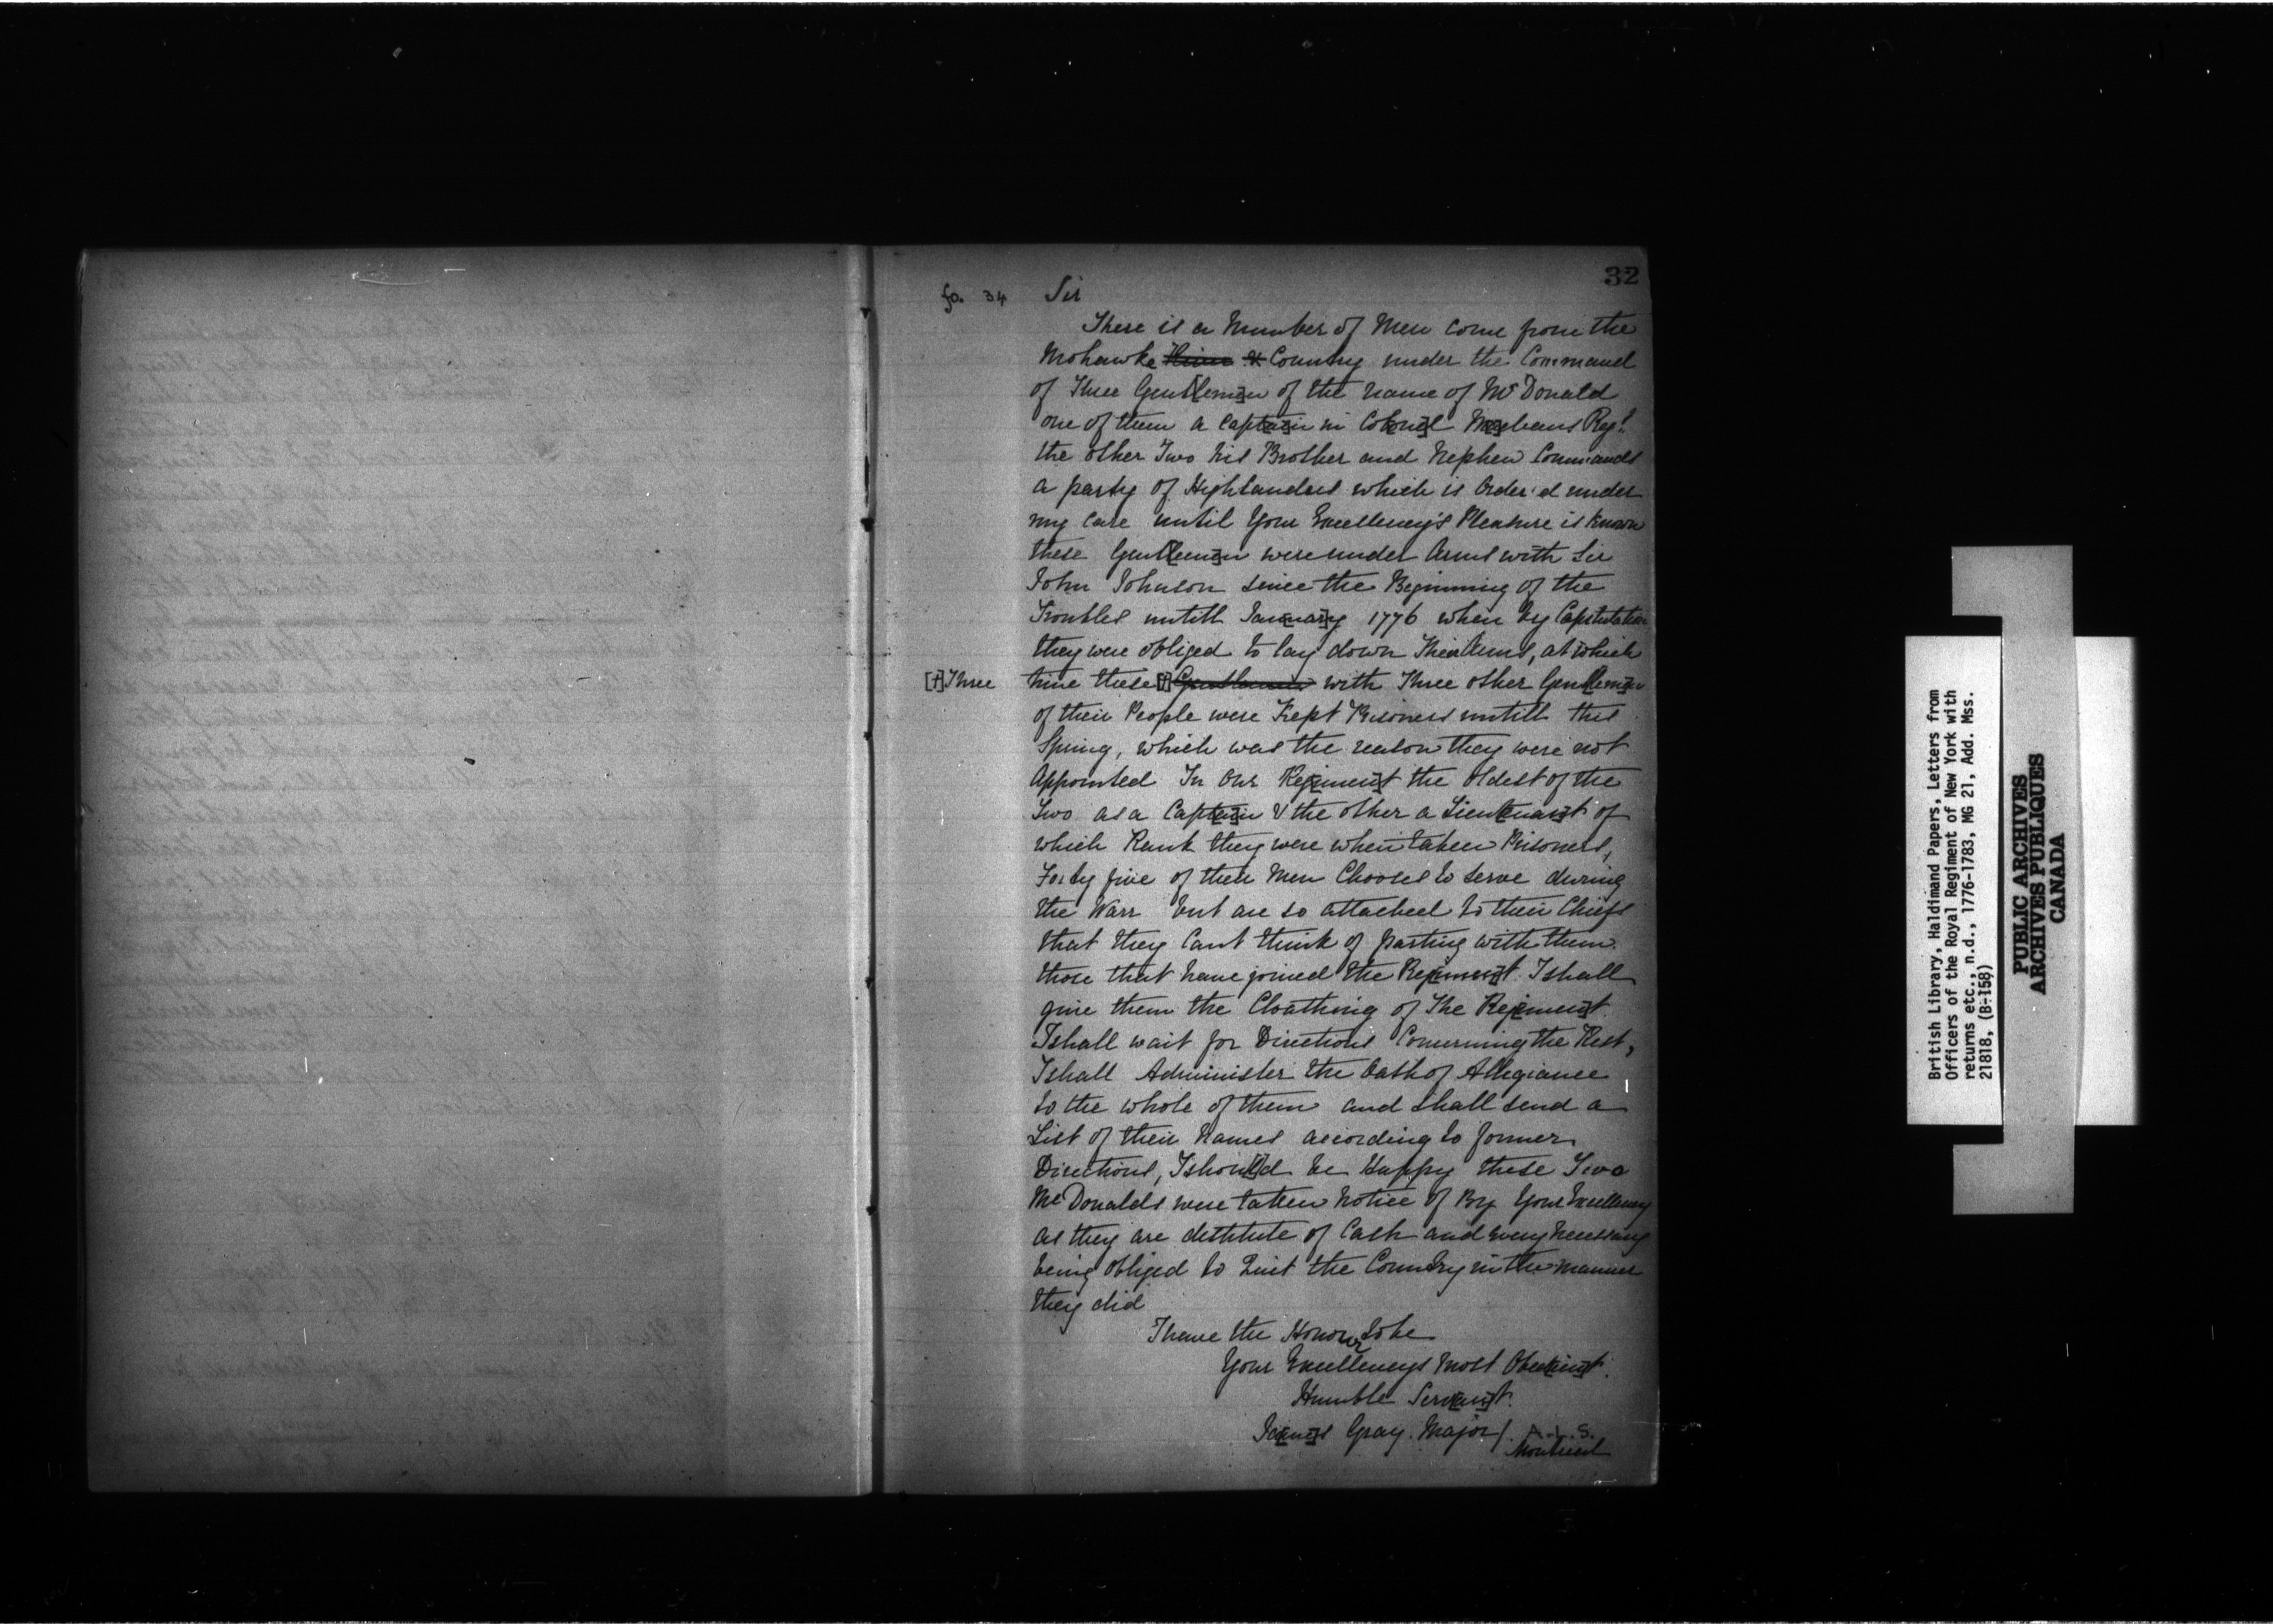 32
fo. 34 Sir
There is a Number of Men come from the
Mohawke ~~River~~ & Country under the Command
of Three Gent[lem]en of the name of McDonald
one of them a Capt[ai]n in Col[one]l M[a]cleans Regt.
the other Two his Brother and Nephew Commands
a party of Highlanders which is Order'd under
my Care until Your Excellency's Pleasure is known
these Gent[lem]en were under Arms with Sir
John Johnson since the Beginning of the
Troubles untill Jan[uar]y 1776 when by Capitulation
they were obliged to lay down Their Arms, at which
[+] Three time these [+] ~~Gentlemen~~ with Three other Gen[tlem]en
of their People were Kept Prisoners untill this
Spring, which was the reason they were not
Appointed In Our Reg[imen]t the oldest of the
Two as a Capt[ai]n & the other a Lieu[tenan]t of
which Rank they were when taken Prisoners,
Forty five of their Men Chooses to serve during
the Warr but are so attached to their Chiefs
that they Cant think of parting with them
those that have joined the Reg[imen]t I shall
give them the Cloathing of The Reg[imen]t.
I shall wait for Directions Concerning the Rest,
I shall Administer the Oath of Allegiance
to the whole of them and shall send a
List of their Names according to former
Directions, I shou[l]d be Happy these Two
McDonalds were taken Notice of By Your Excellency
as they are destitute of Cash and every Necessary
being obliged to Quit the Country in the manner
they did
I have the Honour to be
Your Excellencys Most Obed[ien]t.
Humble Serv[an]t.
Ja[me]s Gray. Major/. A.L.S.
Montreal
British Library, Haldimand Papers, Letters from
Officers of the Royal Regiment of New York with
returns etc., n.d., 1776-1783, MG 21, Add. Mss.
21818, (B-158)
PUBLIC ARCHIVES
ARCHIVES PUBLIQUES
CANADA